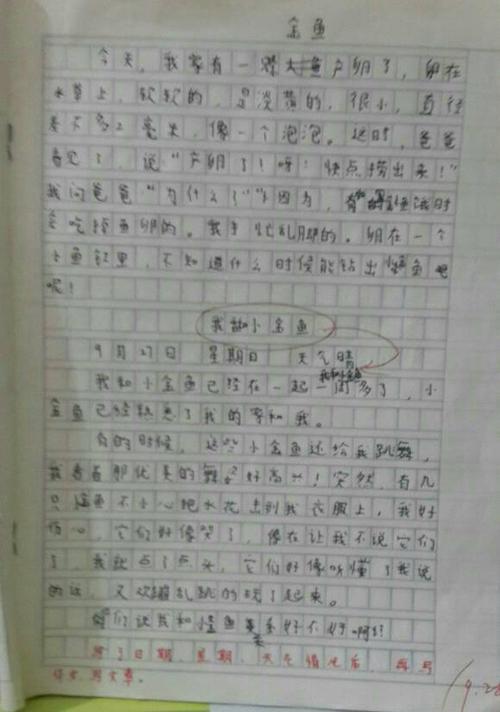 金鱼
今天，我家有一大鱼产卵了，卵在
水草上，软软的，是淡黄的，很小，直径
差不多2毫米，像一个泡泡。这时，爸爸
看见了，说“产卵了！呀！快点捞出来！”
我问爸爸“为什么了”“因为，有的金鱼饿时
会吃掉鱼卵的。我手忙乱脚的。卵在一个
小鱼缸里，不知道什么时候能钻出小金鱼呢
呢！
我和小金鱼
9月27日 星期日 天气晴
我和小金鱼已经在一起一周多了，小
金鱼已经熟悉了我的家和我。
有的时候，这些小金鱼还给我跳舞，
我看着那优美的舞好高兴！突然，有几
只鱼不小心把水花到我衣服上，我好
伤心，它们好像哭了，像在让我不说它们
了，我就点了点头，它们好像听懂了我说
的话，又欢蹦乱跳的玩了起来。
你们说我和金鱼关系好不好啊！
写了日期、星期、天气情况后，再写
作文。
9.28